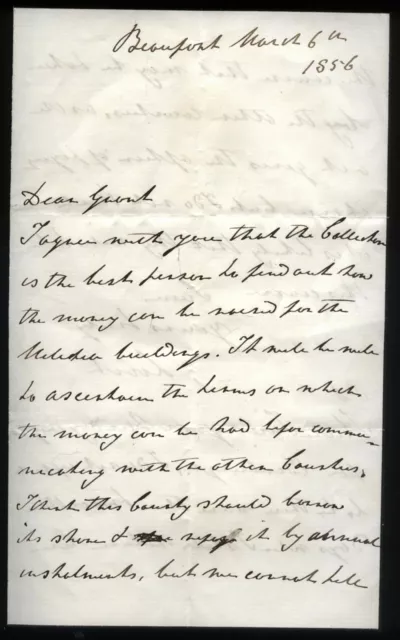 Beaufort March 6th
1856
Dear Grant
I agree with you that the Collector
is the best person to find out how
the money can be raised for the
Militia buildings. It will be well
to ascertain the terms on which
the money can be had before commu-
nicating with the other Counties.
I think this County should borrow
its share & repay it by annual
instalments, but we cannot tell